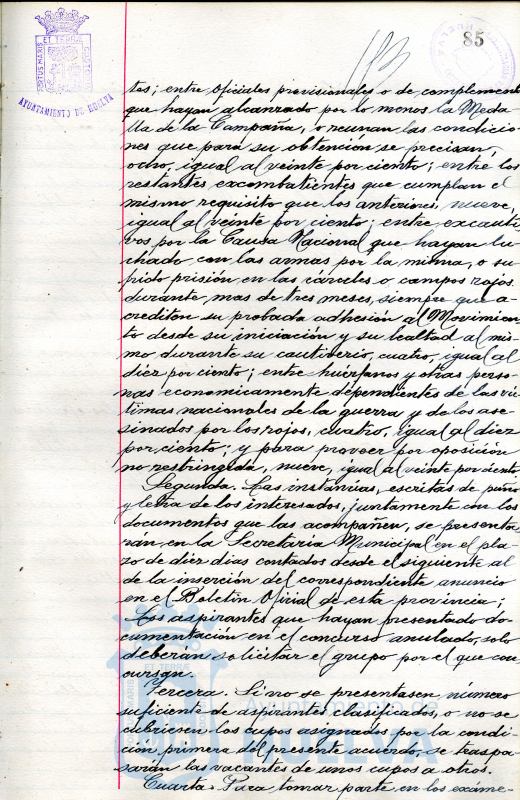 85
PORTUS MARIS ET TERRAE CUSTODIA
AYUNTAMIENTO DE HUELVA
tes; entre oficiales provisionales o de complemento
que hayan alcanzado por lo menos la Meda
lla de la Campaña, o reunan las condicio
nes que para su obtención se precisan,
ocho, igual al veinte por ciento; entre los
restantes excombatientes que cumplan el
mismo requisito que los anteriores, nueve,
igual al veinte por ciento; entre excauti
vos por la Causa Nacional que hayan lu
chado con las armas por la misma, o su
frido prisión en las cárceles o campos rojos
durante, mas de tres meses, siempre que a-
crediten su probada adhesión al Movimien
to desde su iniciación y su lealtad al mis-
mo durante su cautiverio, cuatro, igual al
diez por ciento; entre huérfanos y otras perso
nas economicamente dependientes de las víc
timas nacionales de la guerra y de los ase-
sinados por los rojos, cuatro, igual al diez
por ciento; y para proveer por oposición
no restringida, nueve, igual al veinte por ciento
Segunda. Las instancias, escritas de puño
y letra de los interesados, juntamente con los
documentos que las acompañen, se presenta
rán en la Secretaría Municipal en el pla-
zo de diez dias contados desde el siguiente al
de la inserción del correspondiente anuncio
en el Boletín Oficial de esta provincia;
Los aspirantes que hayan presentado do-
cumentación en el concurso anulado, solo
deberán solicitar el grupo por el que con
cursan.
Tercera. Si no se presentasen número
suficiente de aspirantes clasificados, o no se
cubriesen los cupos asignados por la condi-
ción primera del presente acuerdo, se traspa-
sarán las vacantes de unos cupos a otros.
Cuarta. Para tomar parte en los exáme-
Ayuntamiento de
HUELVA